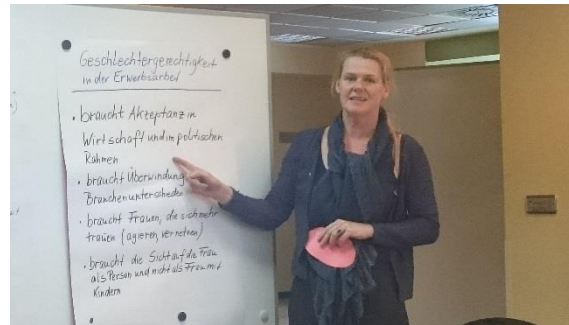 Geschlechtergerechtigkeit
in der Erwerbsarbeit
• braucht Akzeptanz in
Wirtschaft und im politischen
Rahmen
• braucht Überwindung
Branchenunterschieden
• braucht Frauen, die sich mehr
trauen (agieren, vernetzen)
• braucht die Sicht auf die Frau
als Person und nicht als Frau mit
Kindern